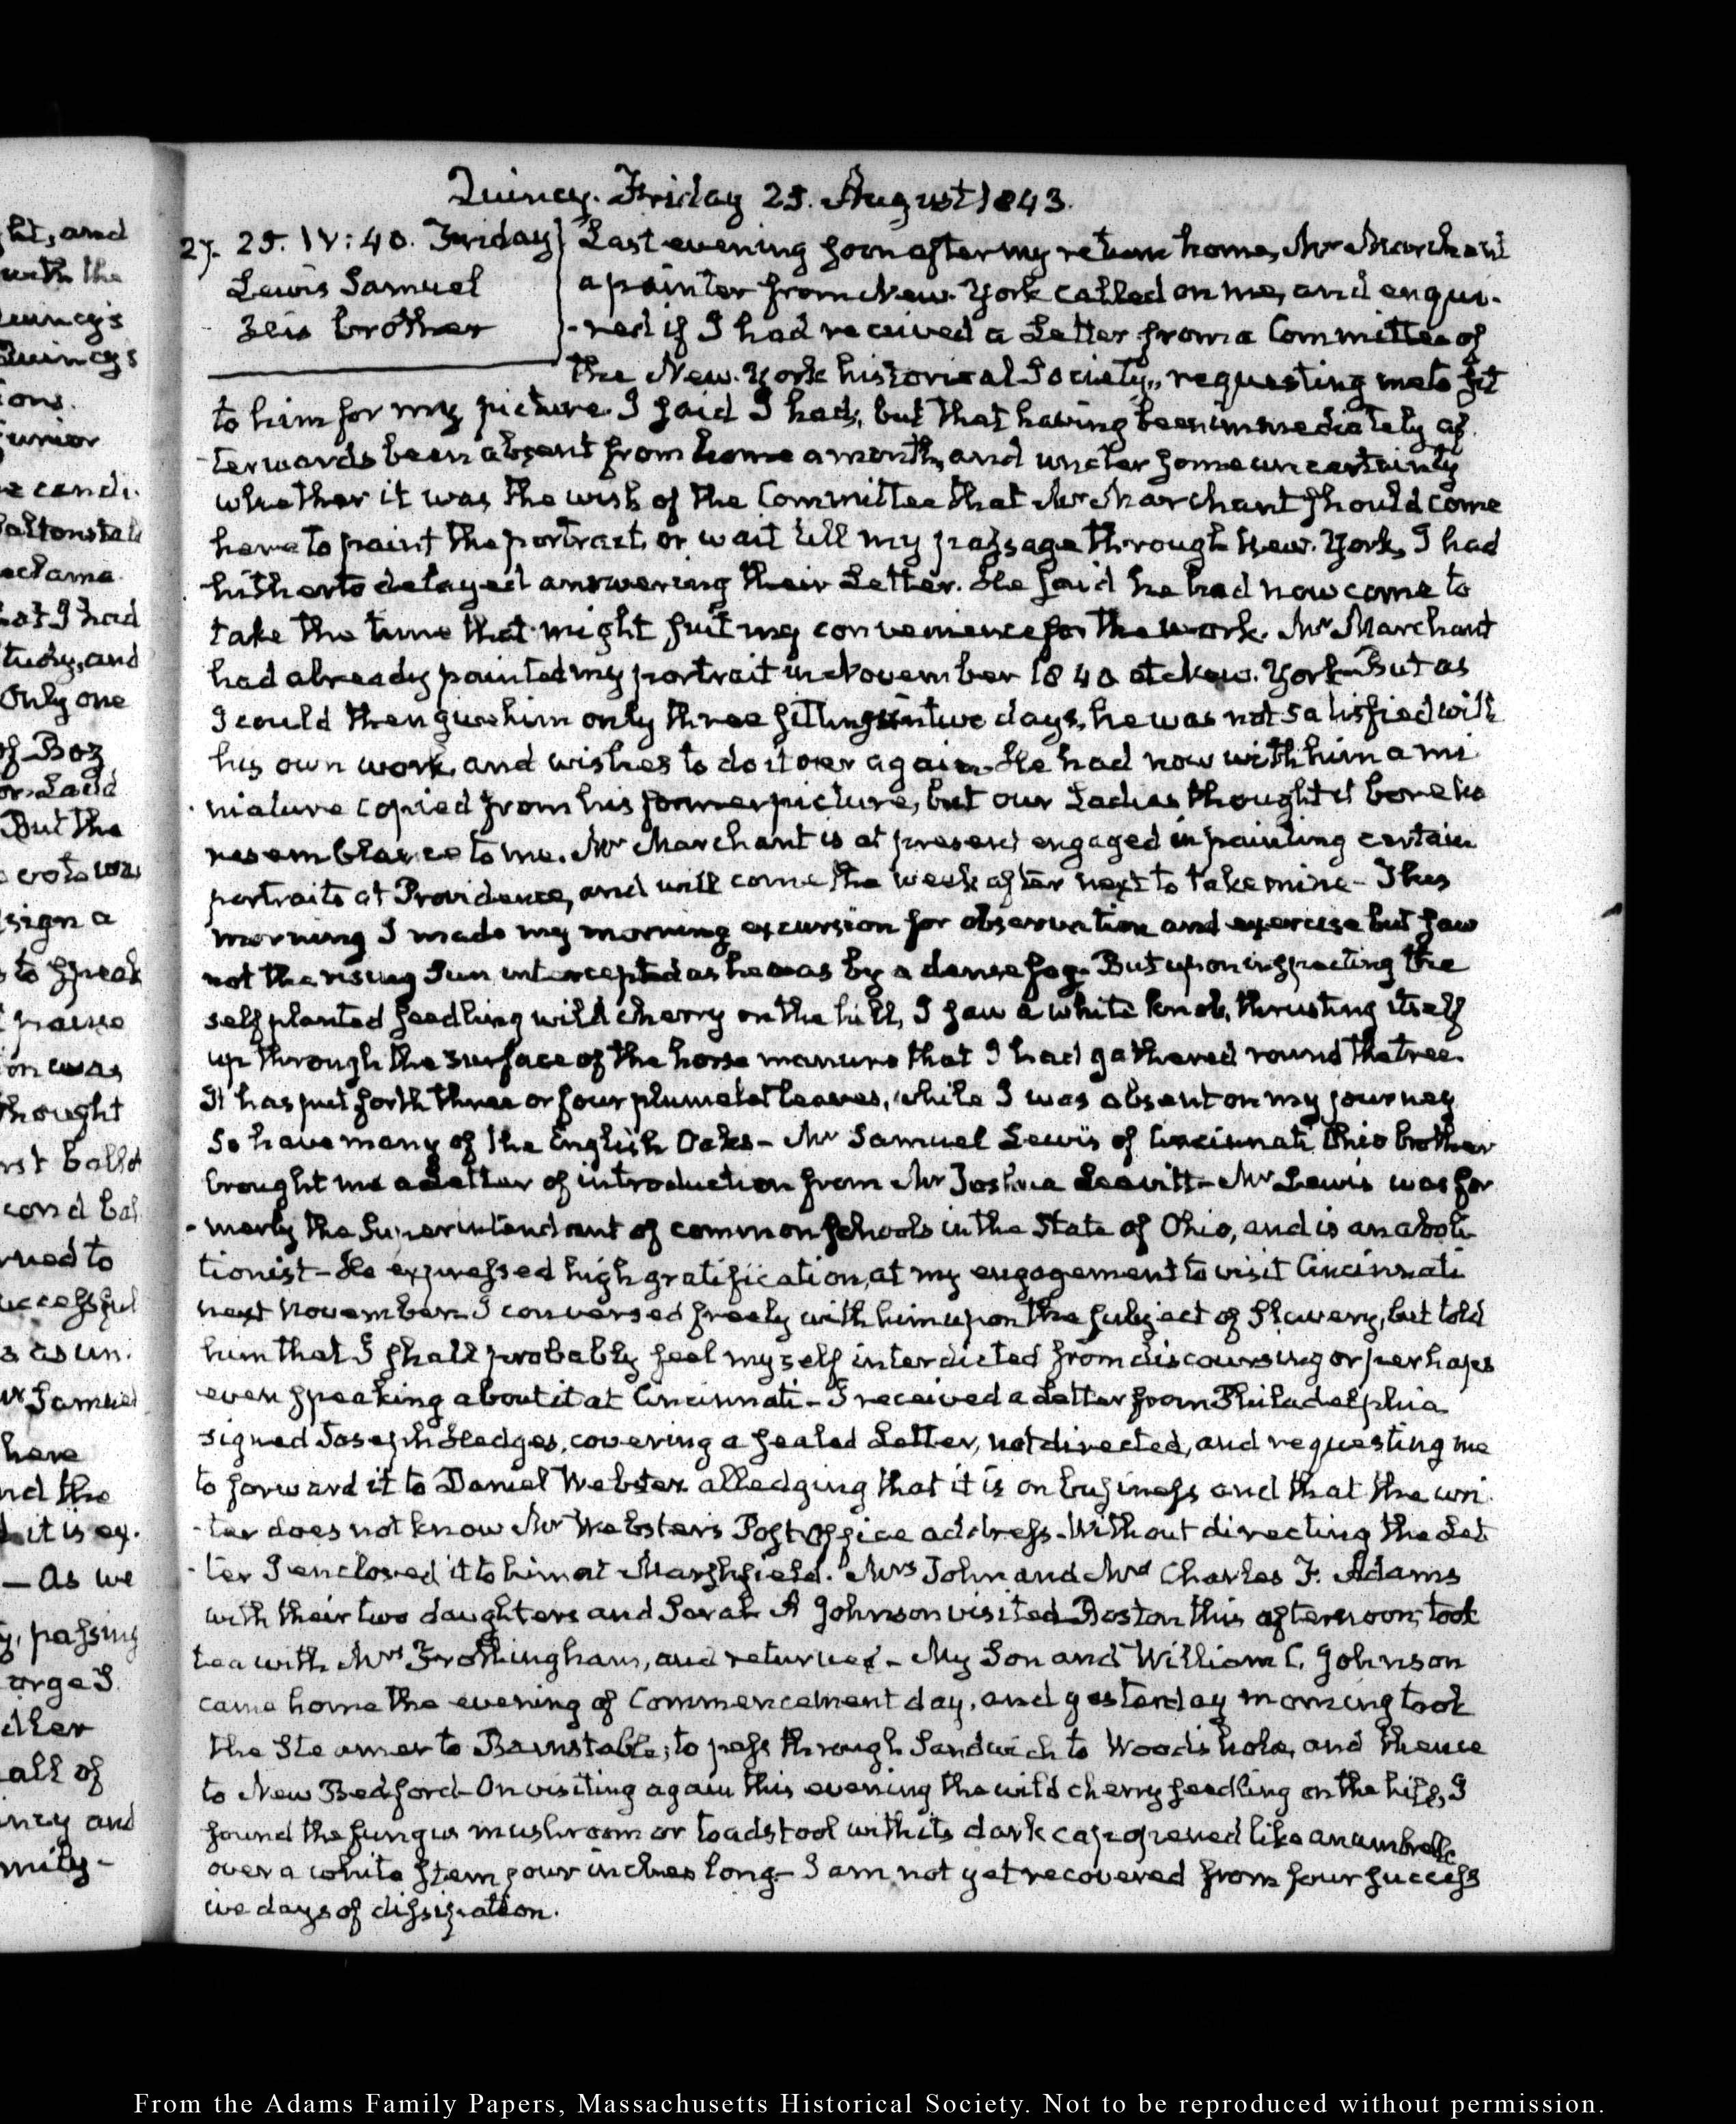 ht, and
with the
Quincy's
Quincy's
ions.
junior
e candi-
altonstall
eclama
at I had
tudy, and
Only one
of Boz
or Laud
But the
vote was
sign a
to speak
praise
on was
thought
rst ballot
cond bal
rned to
uccessful
s as un-
Mr Samuel
here
nd the
it is ex-
— As we
y, passing
orge S.
dler
all of
incy and
mily -
Quincy. Friday 25. August 1843.
27. 25. IV:40. Friday
Lewis Samuel
his brother
Last evening soon after my return home, Mr Marchant
a painter from New-York called on me, and enqui-
-red if I had received a Letter from a Committee of
the New-York historical Society, requesting me to sit
to him for my picture. I said I had, but that having been immediately af-
-terwards been absent from home a month, and under some uncertainty
whether it was the wish of the Committee that Mr Marchant should come
here to paint the portrait, or wait till my passage through New-York, I had
hitherto delayed answering their Letter. He said he had now come to
take the time that might suit my convenience for the work. Mr Marchant
had already painted my portrait in November 1840 at New-York. But as
I could then give him only three sittings in two days, he was not satisfied with
his own work, and wishes to do it over again. He had now with him a mi-
-niature copied from his former picture, but our Ladies thought it bore no
resemblance to me. Mr Marchant is at present engaged in painting certain
portraits at Providence, and will come the week after next to take mine - This
morning I made my morning excursion for observation and exercise but saw
not the rising Sun intercepted as he was by a dense fog. But upon inspecting the
self planted seedling wild cherry on the hill, I saw a white knob, thrusting itself
up through the surface of the horse manure that I had gathered round the tree.
It has put forth three or four plumelet leaves, while I was absent on my journey
So have many of the English Oaks - Mr Samuel Lewis of Cincinnati Ohio brother
brought me a Letter of introduction from Mr Joshua Leavitt - Mr Lewis was for
-merly the Superintendant of common schools in the State of Ohio, and is an aboli
tionist - He expressed high gratification, at my engagement to visit Cincinnati
next November. I conversed freely with him upon the subject of Slavery, but told
him that I shall probably feel myself interdicted from discoursing or perhaps
even speaking about it at Cincinnati - I received a Letter from Philadelphia
signed Joseph Hedges, covering a sealed Letter, not directed, and requesting me
to forward it to Daniel Webster alledging that it is on business and that the wri-
-ter does not know Mr Webster's Post Office address. Without directing the Let
-ter I enclosed it to him at Marshfield. Mrs John and Mrs Charles F. Adams
with their two daughters and Sarah A Johnson visited Boston this afternoon, took
tea with Mrs Frothingham, and returned - My Son and William C. Johnson
came home the evening of Commencement day, and yesterday morning took
the Steamer to Barnstable; to pass through Sandwich to Woods hole, and thence
to New Bedford - On visiting again this evening the wild cherry seedling on the hill, I
found the fungus mushroom or toadstool with its dark cap opened like an umbrella
over a white stem four inches long - I am not yet recovered from four success
ive days of dissipation.
From the Adams Family Papers, Massachusetts Historical Society. Not to be reproduced without permission.